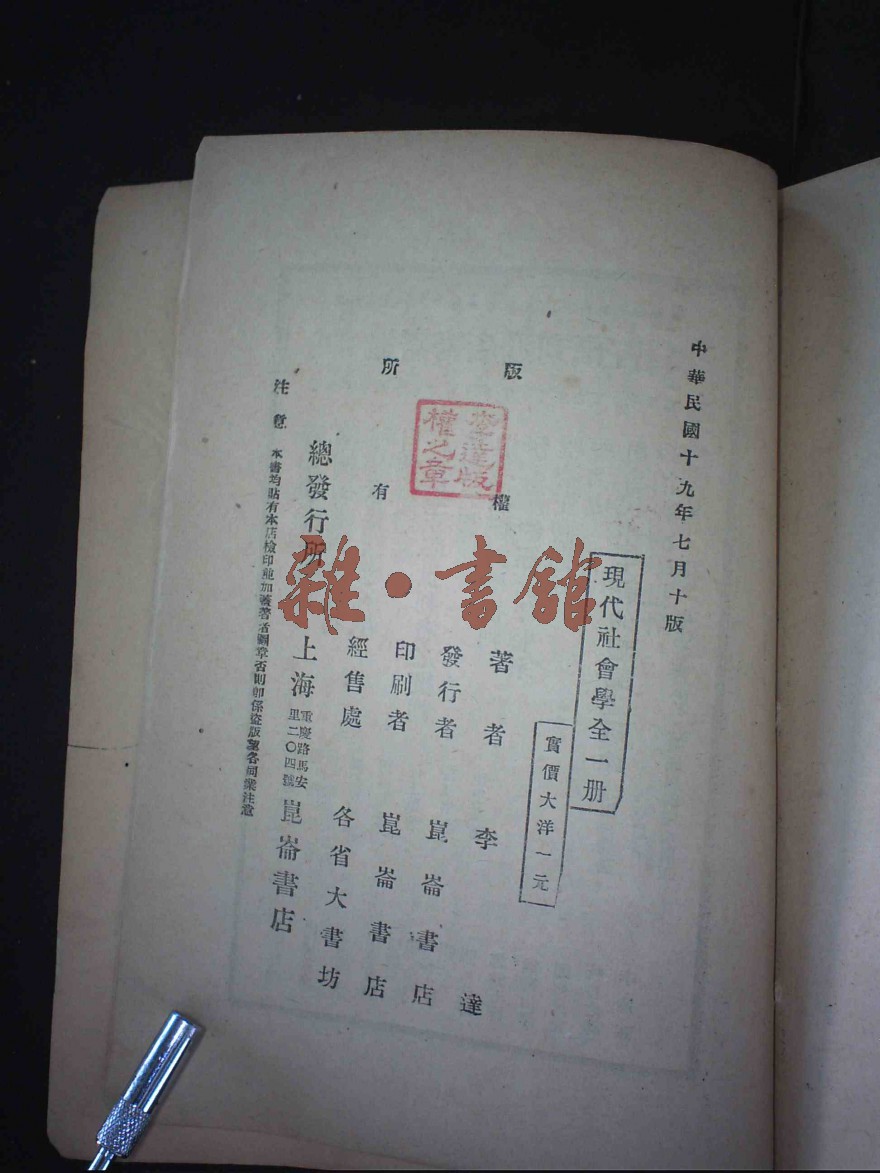 中華民國十九年七月十版
現代社會學全一册
實價大洋一元
版權
所有
李達版權之章
著者 李達
發行者 崑崙書店
印刷者 崑崙書店
經售處 各省大書坊
總發行所 上海 重慶路馬安里二〇四號 崑崙書店
注意 本書均貼有本店檢印並加蓋著者圖章否則卽係盜版望各同業注意
雜·書館